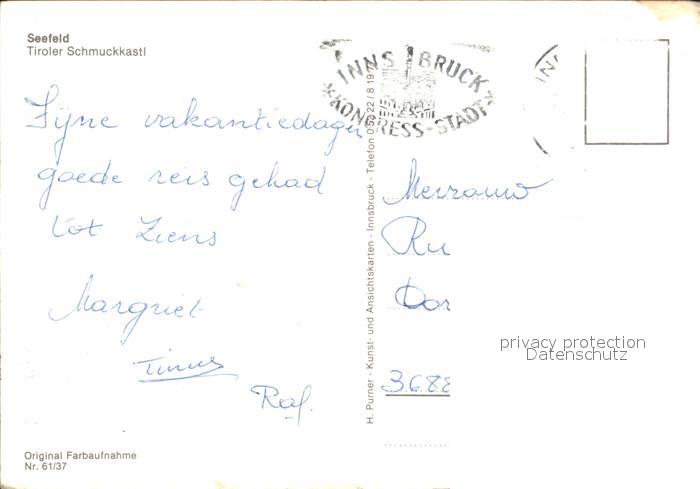 Seefeld
Tiroler Schmuckkastl
INNSBRUCK
*KONGRESS-STADT*
INN
Fijne vakantiedagen
goede reis gehad
tot ziens
Margriet
Raf.
H. Purner - Kunst- und Ansichtskarten - Innsbruck - Telefon
Ru
Dor
3688
privacy protection
Datenschutz
Original Farbaufnahme
Nr. 61/37